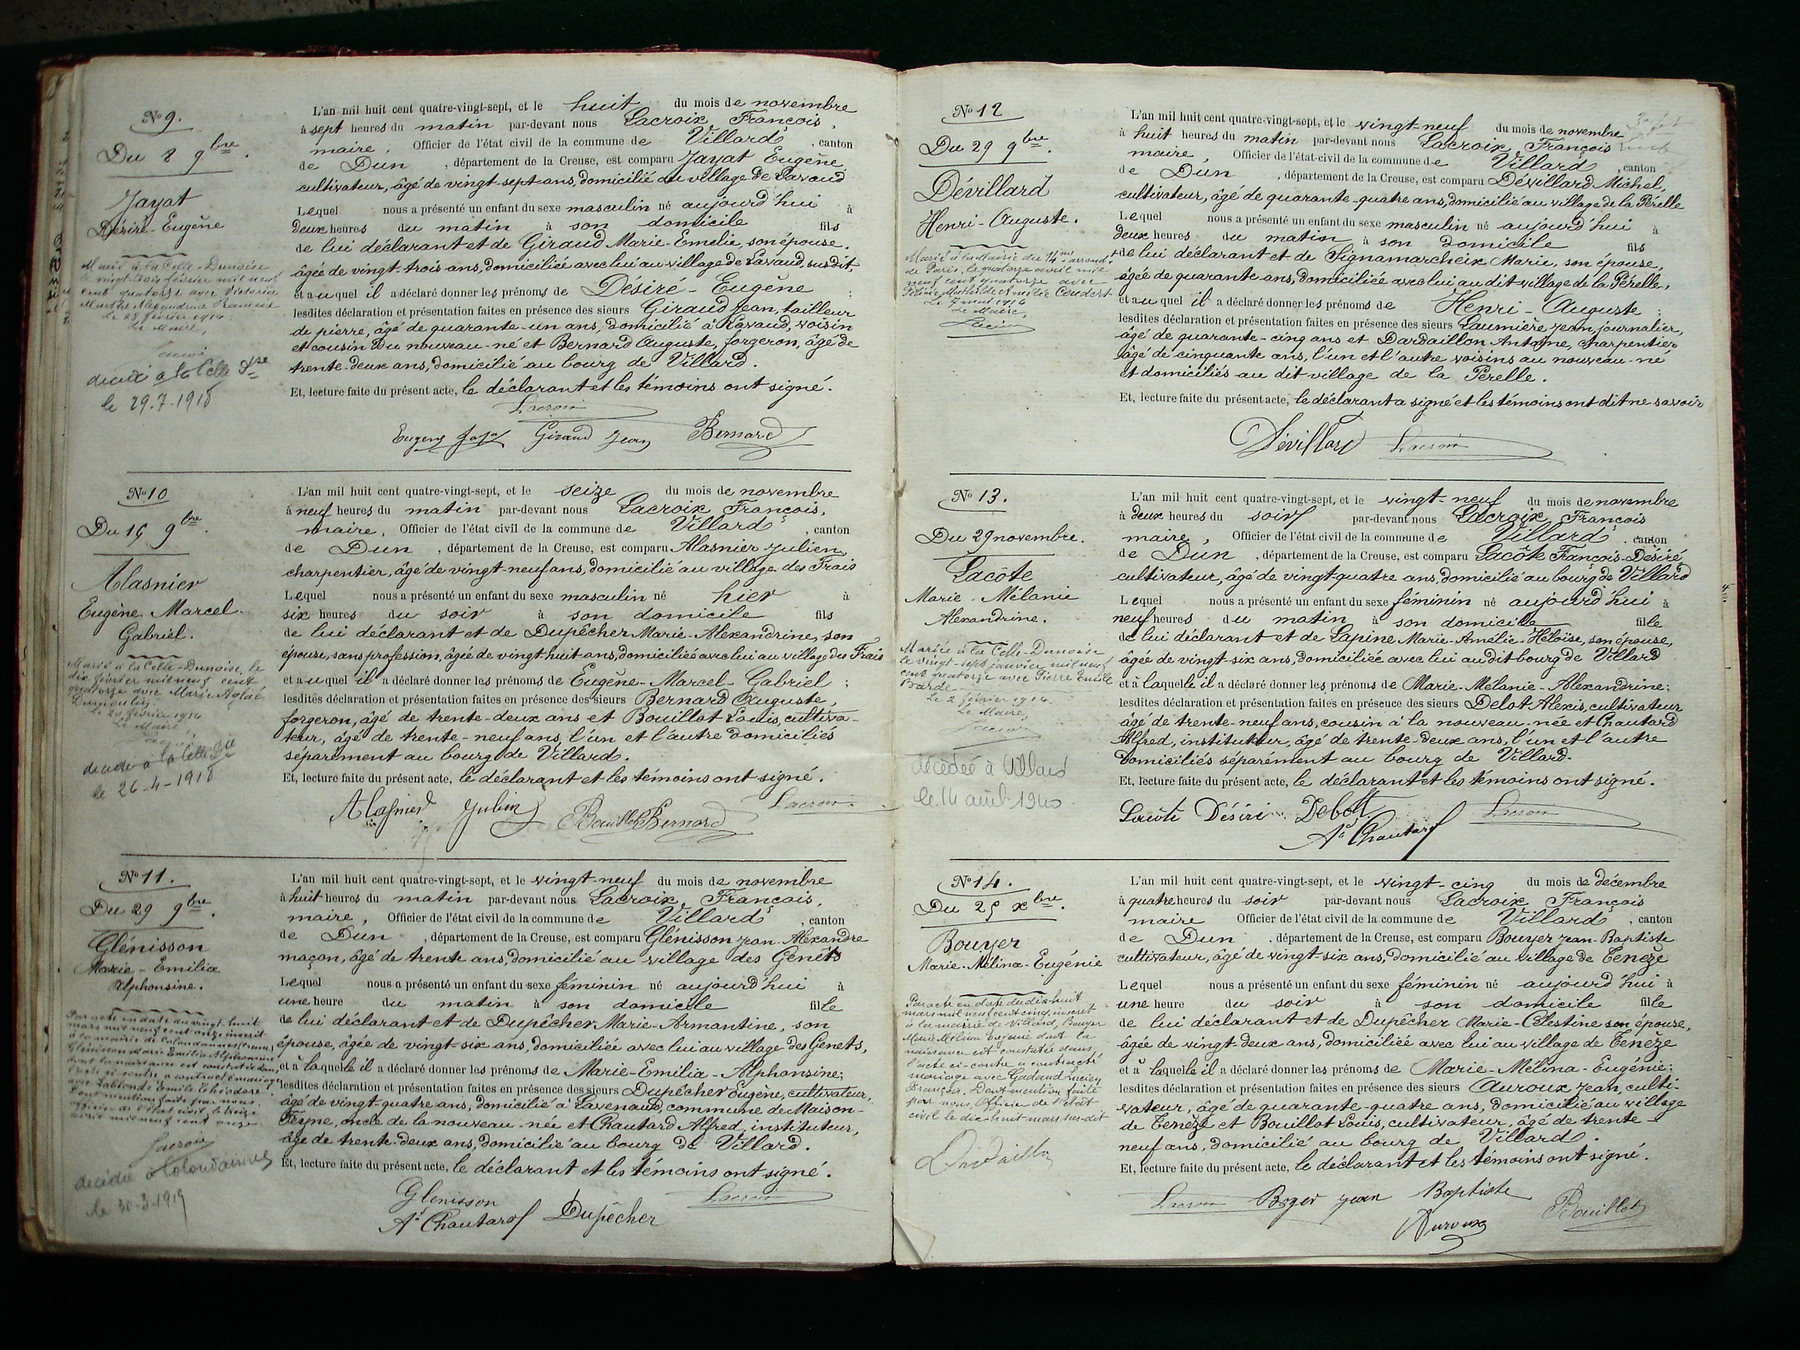 No 9.
Du 8 9bre.
Jayat
Désiré-Eugène
Marié à la Celle-Dunoise
le vingt trois février mil neuf
cent quatorze avec Victorine
Marthe Alexandrine
Le 28 février 1914
Le Maire,
décédé à la Celle Dse
le 29.7.1918
L'an mil huit cent quatre-vingt-sept, et le huit du mois de novembre
à sept heures du matin par-devant nous Lacroix François,
maire, Officier de l'état civil de la commune de Villard, canton
de Dun, département de la Creuse, est comparu Jayat Eugène
cultivateur, âgé de vingt-sept ans, domicilié au village de Lavaud
Lequel nous a présenté un enfant du sexe masculin né aujourd'hui à
deux heures du matin à son domicile fils
de lui déclarant et de Giraud Marie-Emelie, son épouse.
âgée de vingt-trois ans, domiciliée avec lui au village de Lavaud, susdit,
et auquel il a déclaré donner les prénoms de Désiré-Eugène :
lesdites déclaration et présentation faites en présence des sieurs Giraud Jean, tailleur
de pierre, âgé de quarante-un ans, domicilié à Lavaud, voisin
et cousin du nouveau-né et Bernard Auguste, forgeron, âgé de
trente-deux ans, domicilié au bourg de Villard.
Et, lecture faite du présent acte, le déclarant et les témoins ont signé.
Lacroix
Eugène Jayat Giraud Jean Bernard
No 10
Du 16 9bre.
Alasnier
Eugène Marcel
Gabriel.
Marié à la Celle-Dunoise, le
dix février mil neuf cent
quatorze avec Marie
Dumoulin
Le 20 février 1914
Le Maire
décédé à la Celle Dse
le 26-4-1918
L'an mil huit cent quatre-vingt-sept, et le seize du mois de novembre
à neuf heures du matin par-devant nous Lacroix François,
maire, Officier de l'état civil de la commune de Villard, canton
de Dun, département de la Creuse, est comparu Alasnier Julien
charpentier, âgé de vingt-neuf ans, domicilié au village des Frais
Lequel nous a présenté un enfant du sexe masculin né hier à
six heures du soir à son domicile fils
de lui déclarant et de Dupêcher Marie-Alexandrine, son
épouse, sans profession, âgée de vingt-huit ans, domiciliée avec lui au village des Frais
et auquel il a déclaré donner les prénoms de Eugène-Marcel-Gabriel ;
lesdites déclaration et présentation faites en présence des sieurs Bernard Auguste,
forgeron, âgé de trente-deux ans et Bouillot Louis, cultiva-
teur, âgé de trente-neuf ans, l'un et l'autre domiciliés
séparément au bourg de Villard.
Et, lecture faite du présent acte, le déclarant et les témoins ont signé.
Alasnier Julien Bouillot Bernard Lacroix
No 11.
Du 29 9bre.
Glénisson
Marie-Emilia
Alphonsine.
Par acte en date du vingt-huit
mars mil neuf cent onze inscrit
à la mairie de Colondannes (Creuse)
Glénisson Marie Emilia Alphonsine
dont la naissance est constatée dans
l'acte ci-contre a contracté mariage
avec Emile Théodore
Dont mention faite par nous
officier de l'état civil le treize
avril mil neuf cent onze
Lacroix
décédée à Colondannes
le 30-3-1919
L'an mil huit cent quatre-vingt-sept, et le vingt-neuf du mois de novembre
à huit heures du matin par-devant nous Lacroix, François,
maire, Officier de l'état civil de la commune de Villard, canton
de Dun, département de la Creuse, est comparu Glénisson Jean-Alexandre
maçon, âgé de trente ans, domicilié au village des Genêts
Lequel nous a présenté un enfant du sexe féminin né aujourd'hui à
une heure du matin à son domicile fille
de lui déclarant et de Dupêcher Marie-Armantine, son
épouse, âgée de vingt-six ans, domiciliée avec lui au village des Genêts,
et à laquelle il a déclaré donner les prénoms de Marie-Emilia-Alphonsine;
lesdites déclaration et présentation faites en présence des sieurs Dupêcher Eugène, cultivateur,
âgé de vingt-quatre ans, domicilié à Lavenaud, commune de Maison-
Feyne, oncle de la nouveau-née et Chautard Alfred, instituteur,
âgé de trente-deux ans, domicilié au bourg de Villard.
Et, lecture faite du présent acte, le déclarant et les témoins ont signé.
Glenisson Lacroix
Ad Chautard Dupêcher
No 12
Du 29 9bre.
Dévillard
Henri-Auguste.
Marié à la Mairie du 14me arrond.
de Paris, le quatorze avril mil
neuf cent quatorze avec
Coudert
Le 7 août 1916
Le Maire,
Lacroix
L'an mil huit cent quatre-vingt-sept, et le vingt-neuf du mois de novembre
à huit heures du matin par-devant nous Lacroix, François
maire, Officier de l'état-civil de la commune de Villard, canton
de Dun, département de la Creuse, est comparu Dévillard Michel,
cultivateur, âgé de quarante-quatre ans, domicilié au village de la Pérelle
Lequel nous a présenté un enfant du sexe masculin né aujourd'hui à
deux heures du matin à son domicile fils
de lui déclarant et de Signamarcheix Marie, son épouse,
âgée de quarante ans, domiciliée avec lui au dit village de la Pérelle,
et auquel il a déclaré donner les prénoms de Henri-Auguste :
lesdites déclaration et présentation faites en présence des sieurs Laumière Jean, journalier,
âgé de quarante-cinq ans et Dardaillon Antoine, charpentier
âgé de cinquante ans, l'un et l'autre voisins au nouveau-né
et domiciliés au dit village de la Pérelle.
Et, lecture faite du présent acte, le déclarant a signé et les témoins ont dit ne savoir
Dévillard Lacroix
No 13.
Du 29 novembre.
Lacôte
Marie-Mélanie
Alexandrine.
Mariée à la Celle-Dunoise
le vingt-sept janvier mil neuf
cent quatorze avec Pierre Emile
Barde
Le 2 février 1914.
Le Maire,
Lacroix
décédée à Villard
le 14 août 1940
L'an mil huit cent quatre-vingt-sept, et le vingt-neuf du mois de novembre
à deux heures du soir par-devant nous Lacroix, François
maire, Officier de l'état civil de la commune de Villard, canton
de Dun, département de la Creuse, est comparu Lacôte François-Désiré
cultivateur, âgé de vingt-quatre ans, domicilié au bourg de Villard
Lequel nous a présenté un enfant du sexe féminin né aujourd'hui à
neuf heures du matin à son domicile fille
de lui déclarant et de Lapine Marie-Amélie-Héloïse, son épouse,
âgée de vingt-six ans, domiciliée avec lui au dit bourg de Villard
et à laquelle il a déclaré donner les prénoms de Marie-Mélanie-Alexandrine;
lesdites déclaration et présentation faites en présence des sieurs Delot Alexis, cultivateur
âgé de trente-neuf ans, cousin à la nouveau-née et Chautard
Alfred, instituteur, âgé de trente-deux ans, l'un et l'autre
domiciliés séparément au bourg de Villard.
Et, lecture faite du présent acte, le déclarant et les témoins ont signé.
Lacôte Désiré Delot Lacroix
Ad Chautard
No 14.
Du 25 xbre.
Bouyer
Marie-Mélina-Eugénie
Par acte en date du dix-huit
mars mil neuf cent cinq, inscrit
à la mairie de Villard, Bouyer
Marie Mélina Eugénie dont la
naissance est constatée dans
l'acte ci-contre a contracté
mariage avec Gadaud Lucien
François. Dont mention faite
par nous Officier de l'état
civil le dix-huit mars sus-dit
Dardaillon
L'an mil huit cent quatre-vingt-sept, et le vingt-cinq du mois de décembre
à quatre heures du soir par-devant nous Lacroix, François
maire Officier de l'état civil de la commune de Villard, canton
de Dun, département de la Creuse, est comparu Bouyer Jean-Baptiste
cultivateur, âgé de vingt-six ans, domicilié au village de Eenèze
Lequel nous a présenté un enfant du sexe féminin né aujourd'hui à
une heure du soir à son domicile fille
de lui déclarant et de Dupêcher Marie-Célestine son épouse,
âgée de vingt-deux ans, domiciliée avec lui au village de Eenèze
et à laquelle il a déclaré donner les prénoms de Marie-Mélina-Eugénie;
lesdites déclaration et présentation faites en présence des sieurs Auroux Jean, culti-
vateur, âgé de quarante-quatre ans, domicilié au village
de Eenèze et Bouillot Louis, cultivateur, âgé de trente-
neuf ans, domicilié au bourg de Villard.
Et, lecture faite du présent acte, le déclarant et les témoins ont signé.
Lacroix Boyer Jean Baptiste Bouillot
Auroux